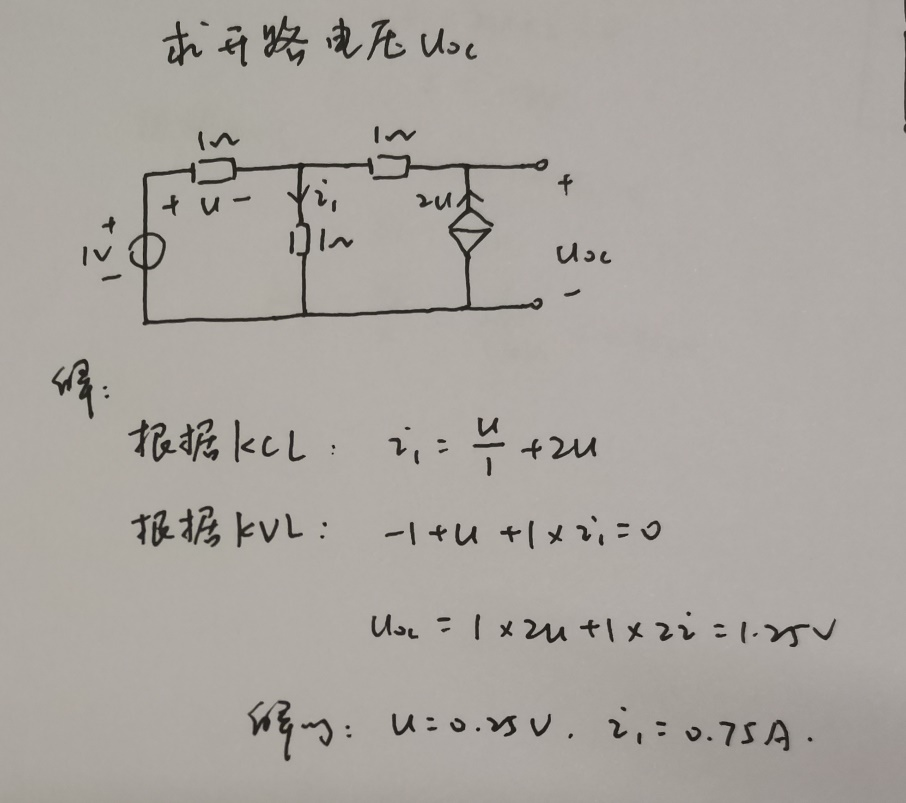 求开路电压 uoc
1Ω
1Ω
+ u -
i₁
2u
+
+
1V
1Ω
uoc
-
-
解:
根据KCL: i₁ = u/1 + 2u
根据KVL: -1+u+1×i₁=0
uoc = 1×2u+1×2i = 1.25V
解得: u=0.25V. i₁=0.75A.